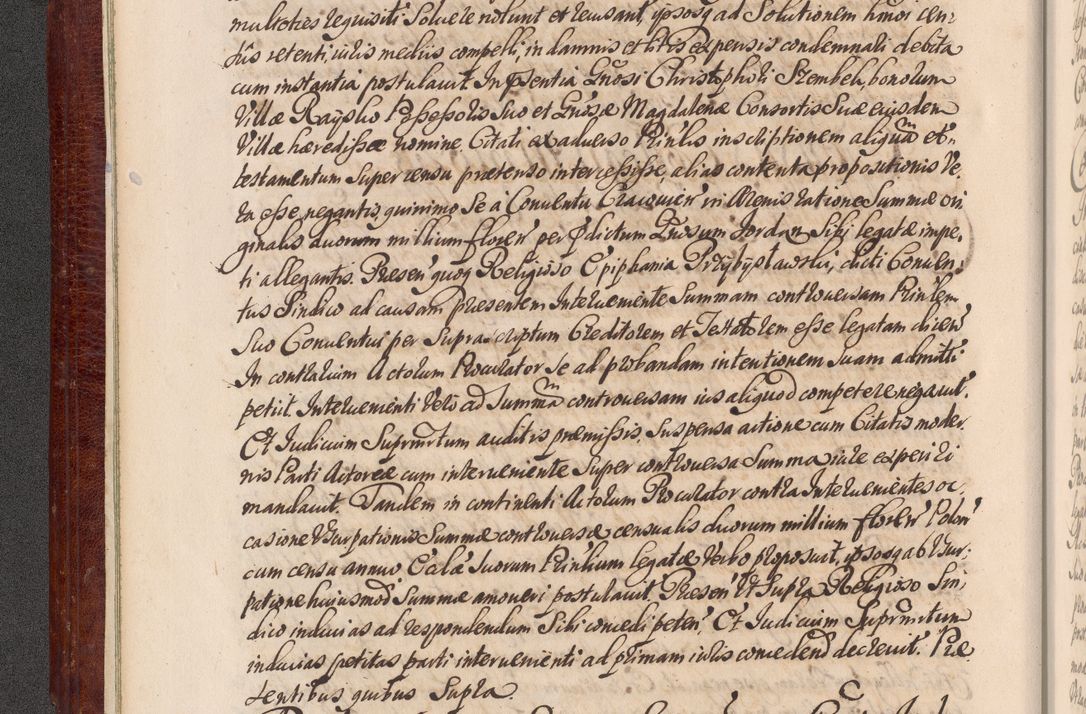 multoties requisiti Soluere nolunt et recusant, ipsosq ad Solutionem hmoi cen:
sûs retenti, iuris mediis compelli, in damnis et litis expensis condemnari debita
cum instantia postulauit. In pśentia Gnosi Christophori Szembek, bonorum
Villæ Raysko Possessoris Suo et Gnosæ Magdalenæ Consortis Suæ eiusdem
Villæ hæredissæ nomine Citati ex aduerso Prinlis inscriptionem aliquam et
testamentum Super censu prætenso intercessisse, alias contenta propositionis Ve,
ra esse, negantis, quinimo Se à Conuentu Cracouien in Arenis ratione Summæ ori
ginalis duorum millium floren per pdictum Gnosum Jordan Sibi legatæ impe,
ti allegantis. Præsen quoq Religioso Epiphanio Przybysławski, dicti Conuen:
tus Sindico ad causam præsentem Interueniente Summam controuersam Prinlem
Suo Conuentui per Suprascriptum Creditorem et Testatorem esse legatam dicen
In contrarium Actorum Procurator Se ad probandam intentionem Suam admitti
petiit. Interuenienti Verò ad Summam controuersam ius aliquod competere negauit.
Et Judicium Suprmrtum auditis præmissis, Suspensa actione cum Citatis moder
nis Parti Actoreæ cum interueniente Super controuersa Summa iure experiri
mandauit. Tandem in continenti Actorum Procurator contra Interuenientes oc,
casione Vsurpationis Summæ controuersæ censualis duorum millium floren Polon
cum censu annuo Ecclæ Suorum Prinlium legatæ Verbo proposuit, ipsosq ab Vsur:
patione huiusmod Summæ amoueri postulauit. Præsen Vt Supra Religioso Sin
dico inducias ad respondendum Sibi concedi peten. Et Judicium Suprmrtum
inducias petitas parti interuenienti ad primam iuris concedend decreuit. Præ
sentibus quibus Supra.